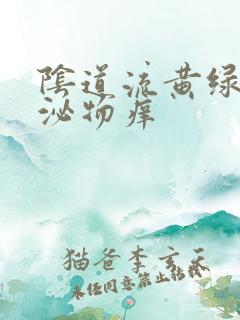 陰道流黄绿
泌物痒
猫爸李玄天
未经同意禁止转载